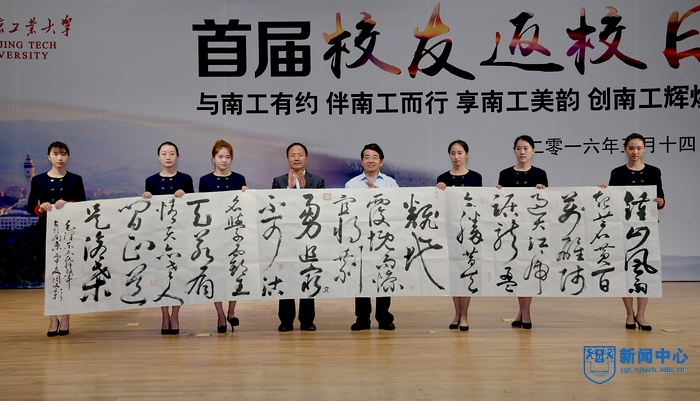 京工业大学
JING TECH
VERSITY
首届校友返校日
与南工有约 伴南工而行 享南工美韵 创南工辉
二零一六年 月十四
鐘山風雨
起苍黄百
萬雄师
过大江虎
踞龙盘
今勝昔天
翻地
覆慨而慷
宜将剩
勇追窮
不可沽
名學霸王
天若有
情天亦老人
间正道
是滄桑
新闻中心
cgt.njtech.edu.cn